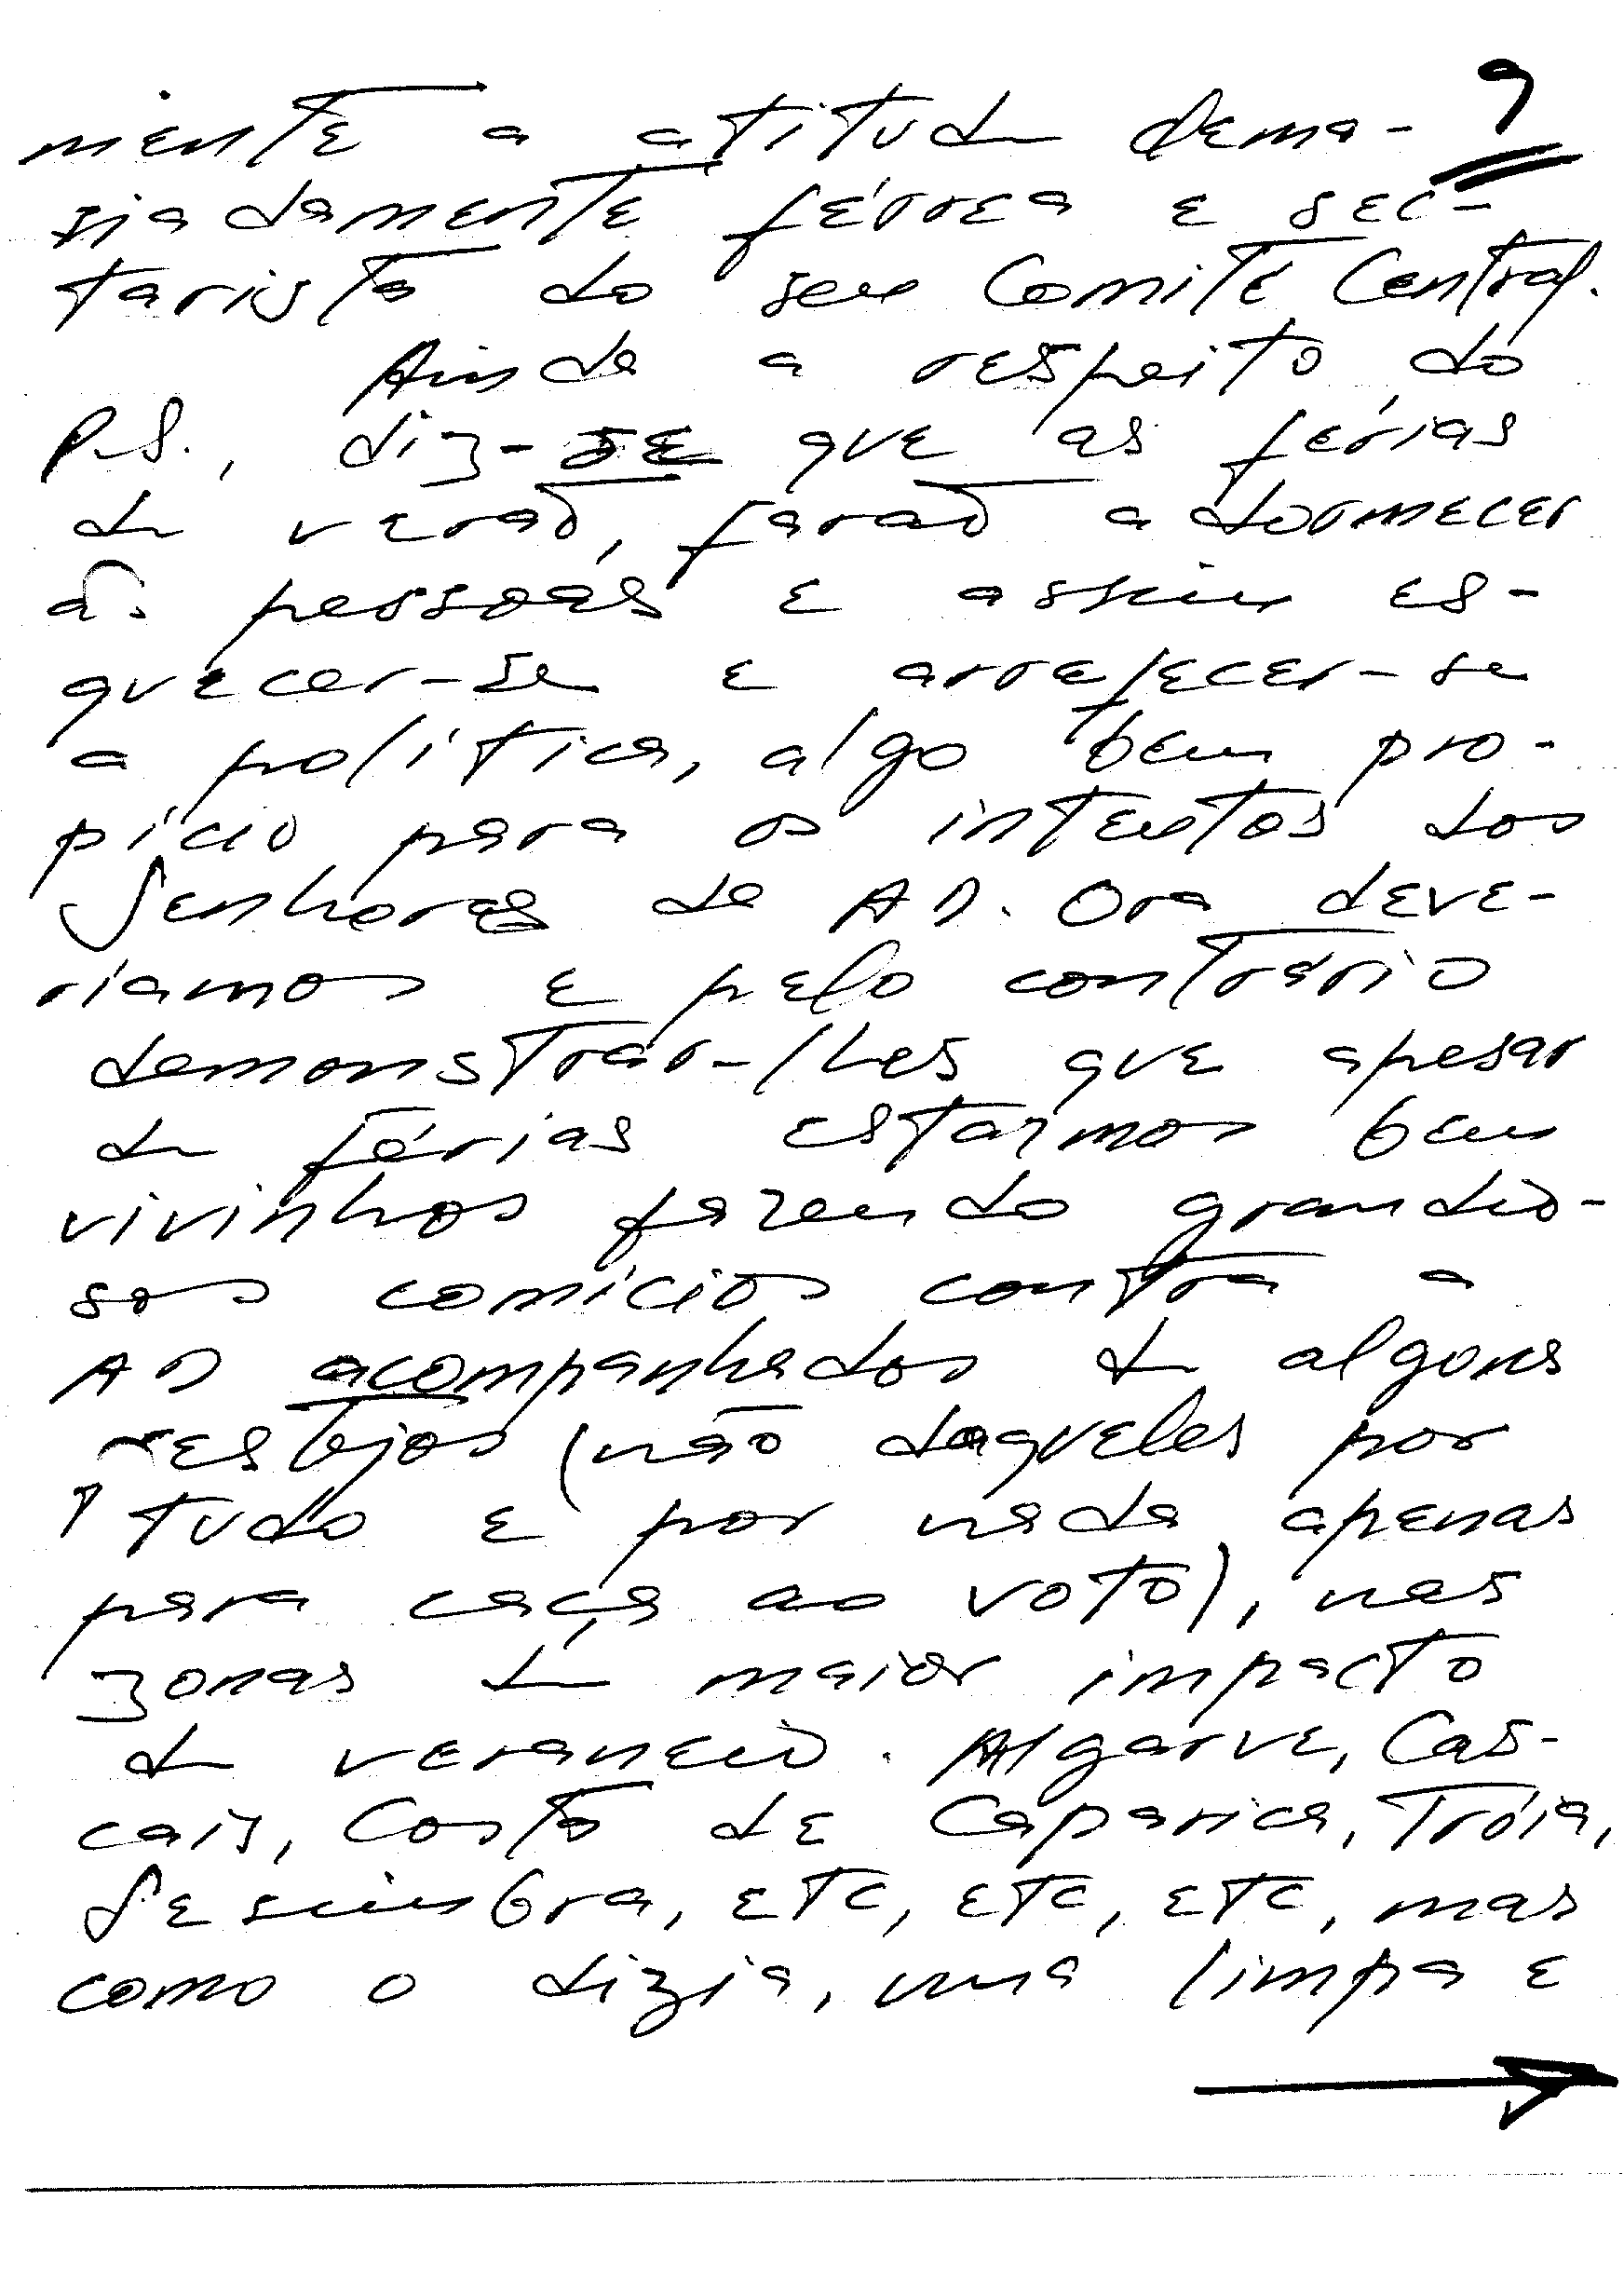 9
mente a atitude dema-
siadamente férrea e sec-
tarista do seu Comité Central.
Ainda a respeito do
P.S., diz-se que as férias
de verão, farão adormecer
as pessoas e assim es-
quecer-se e arrefecer-se
a política, algo bem pro-
pício para os intentos dos
Senhores da AD. Ora deve-
riamos e pelo contrário
demonstrar-lhes que apesar
de férias estarmos bem
vivinhos fazendo grandio-
sos comícios contra a
AD acompanhados de alguns
festejos (não daqueles por
tudo e por nada apenas
para caça ao voto), nas
zonas de maior impacto
de veraneio. Algarve, Cas-
cais, Costa de Caparica, Tróia,
Sesimbra, etc, etc, etc, mas
como o dizia, uma limpa e